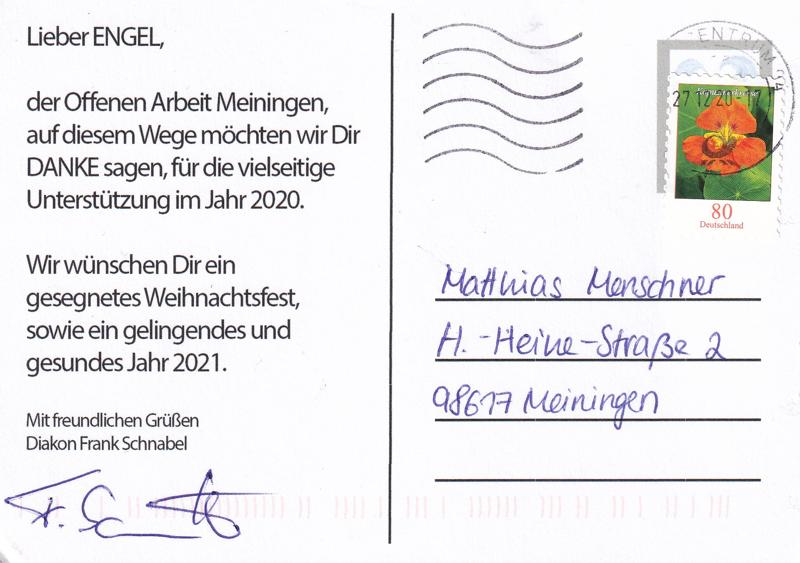 Lieber ENGEL,
der Offenen Arbeit Meiningen,
auf diesem Wege möchten wir Dir
DANKE sagen, für die vielseitige
Unterstützung im Jahr 2020.
Wir wünschen Dir ein
gesegnetes Weihnachtsfest,
sowie ein gelingendes und
gesundes Jahr 2021.
Mit freundlichen Grüßen
Diakon Frank Schnabel
ENTRUM
27.12.20
80
Deutschland
Matthias Menschner
H.-Heine-Straße 2
98617 Meiningen